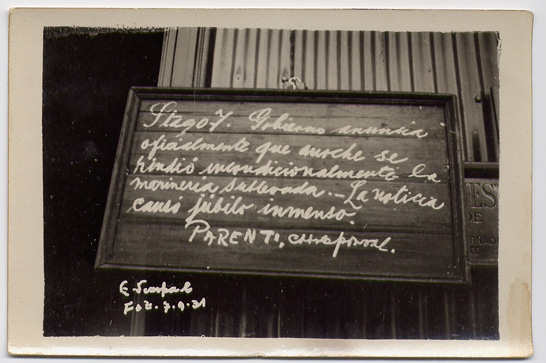 Stago 7. Gobierno anuncia
oficialmente que anoche se
rindió incondicionalmente la
marinería sublevada... La noticia
causó júbilo inmenso.
PARENTI, corresponsal.
EST
DE
E. Scarpa C
Fot. 7.9.31